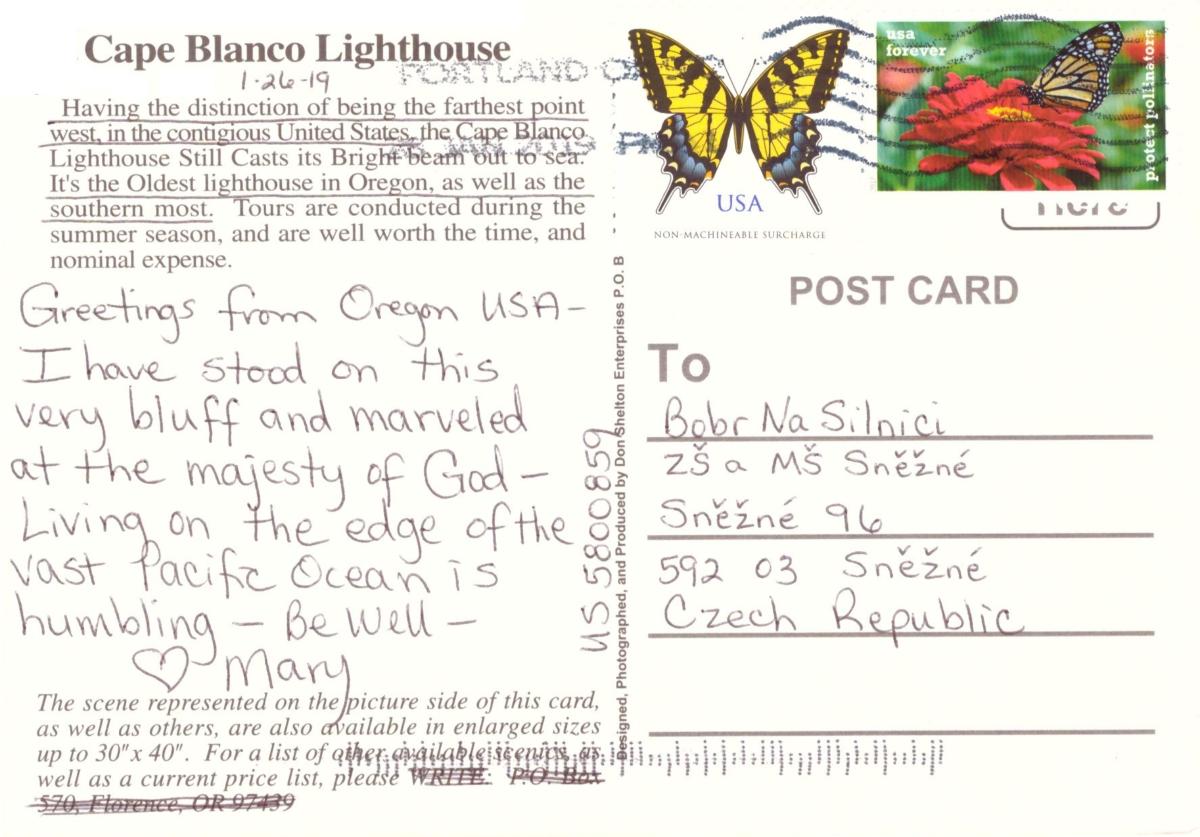 Cape Blanco Lighthouse
1-26-19
Having the distinction of being the farthest point
west, in the contigious United States, the Cape Blanco
Lighthouse Still Casts its Bright beam out to sea.
It's the Oldest lighthouse in Oregon, as well as the
southern most. Tours are conducted during the
summer season, and are well worth the time, and
nominal expense.
Greetings from Oregon USA-
I have stood on this
very bluff and marveled
at the majesty of God-
Living on the edge of the
vast Pacific Ocean is
humbling - Be Well -
♡ Mary
The scene represented on the picture side of this card,
as well as others, are also available in enlarged sizes
up to 30" x 40". For a list of other available scenics, as
well as a current price list, please WRITE: P.O. Box
570, Florence, OR 97439
US 5800859
Designed, Photographed, and Produced by Don Shelton Enterprises P.O. B
PORTLAND
2019 PM
USA
NON-MACHINEABLE SURCHARGE
usa
forever
protect pollinators
Here
POST CARD
To
Bobr Na Silnici
ZŠ a MŠ Sněžné
Sněžné 96
592 03 Sněžné
Czech Republic